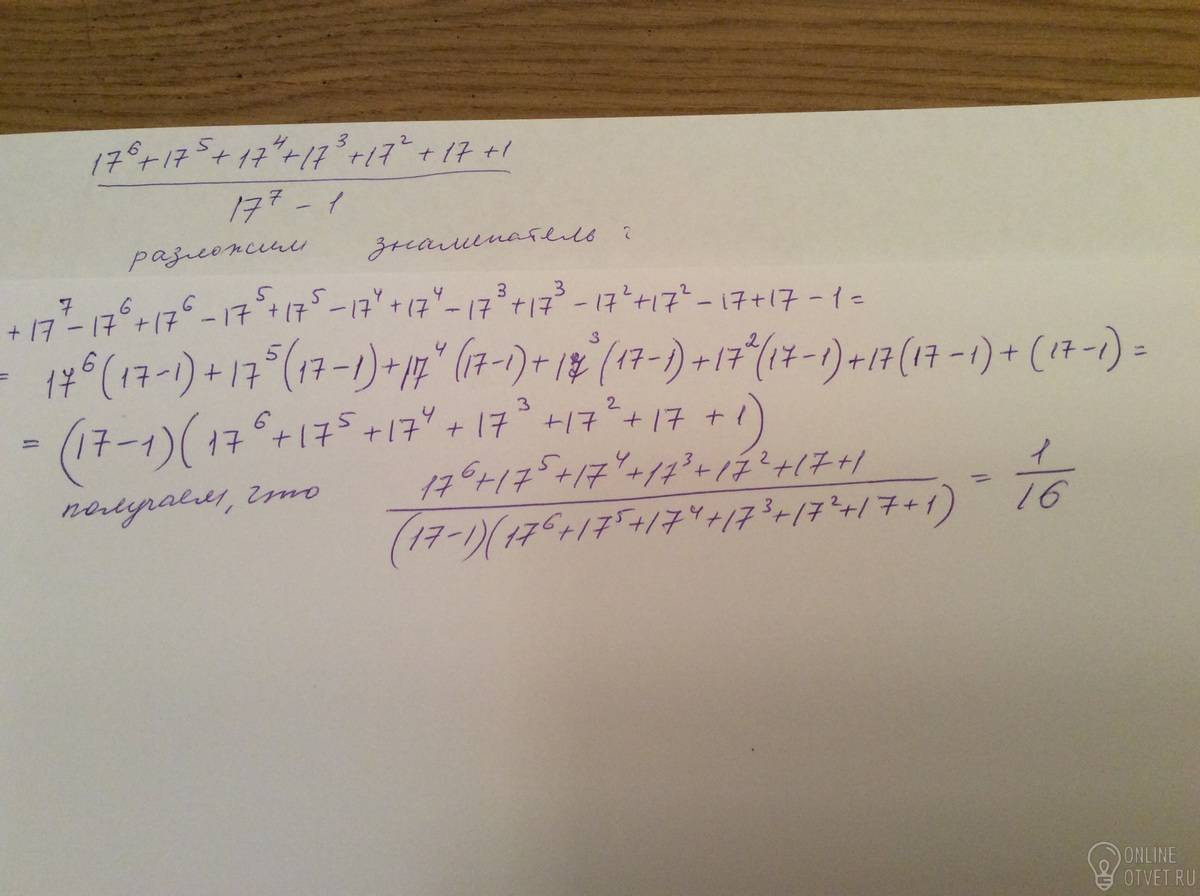 17⁶+17⁵+17⁴+17³+17²+17+1
17⁷-1
разложим знаменатель:
+17⁷-17⁶+17⁶-17⁵+17⁵-17⁴+17⁴-17³+17³-17²+17²-17+17-1=
= 17⁶(17-1)+17⁵(17-1)+17⁴(17-1)+17³(17-1)+17²(17-1)+17(17-1)+(17-1)=
= (17-1)(17⁶+17⁵+17⁴+17³+17²+17+1)
получаем, что 17⁶+17⁵+17⁴+17³+17²+17+1 / (17-1)(17⁶+17⁵+17⁴+17³+17²+17+1) = 1/16
ONLINE
OTVET.RU